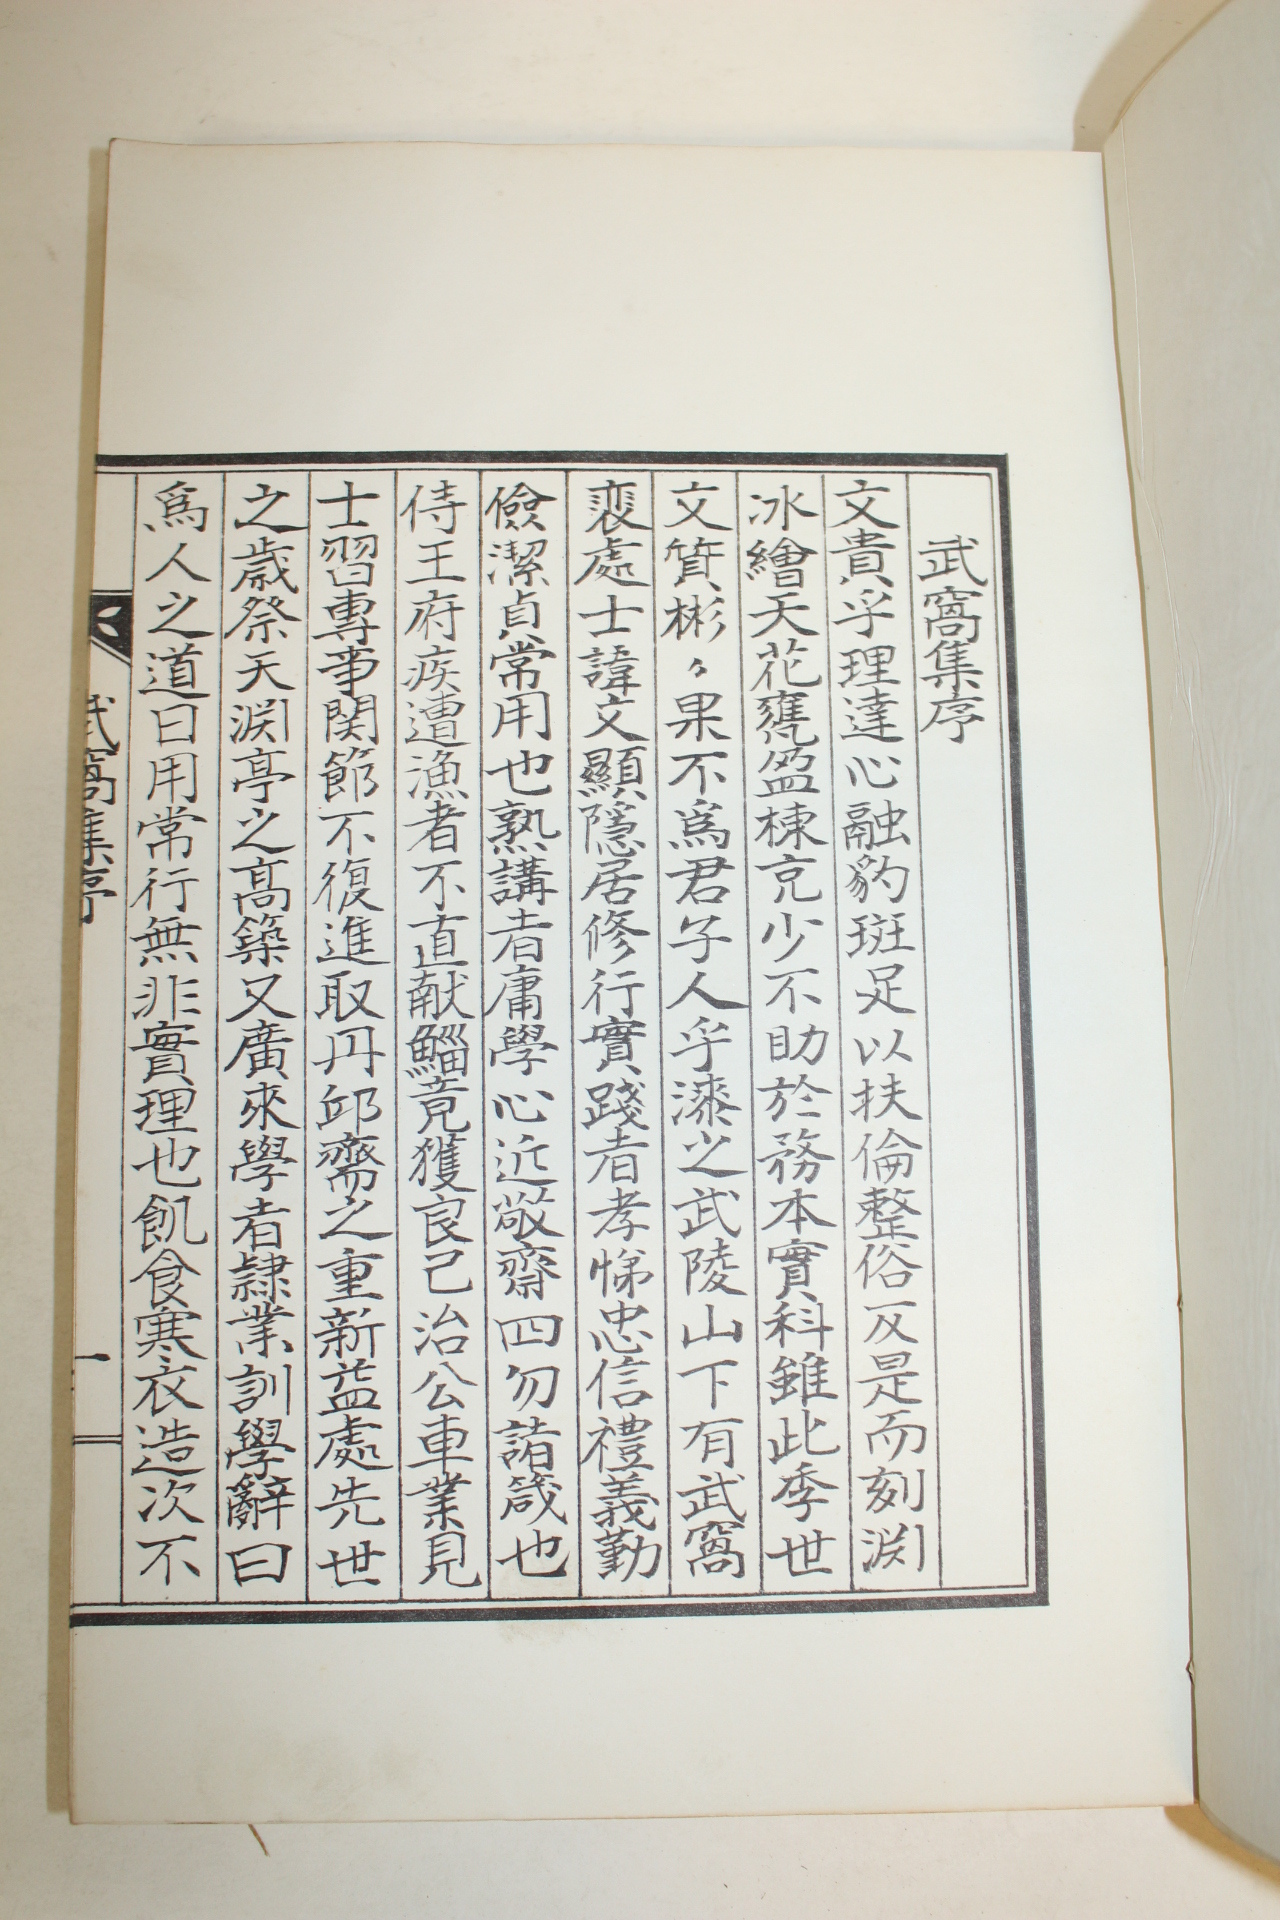 武窩集序
文貴乎理達心融豹斑足以扶倫整俗反是而刻淵
冰繪天花甕盈棟充少不助於務本實科雖此季世
文質彬々果不爲君子人乎漆之武陵山下有武窩
裵處士諱文顯隱居修行實踐者孝悌忠信禮義勤
儉潔貞常用也熟講者庸學心近敬齋四勿諸箴也
侍王府疾遭漁者不直献鯔竟獲良己治公車業見
士習專事関節不復進取丹邱齋之重新盖處先世
之歲祭天淵亭之高築又廣來學者隷業訓學辭曰
爲人之道日用常行無非實理也飢食寒衣造次不
武窩集序
一